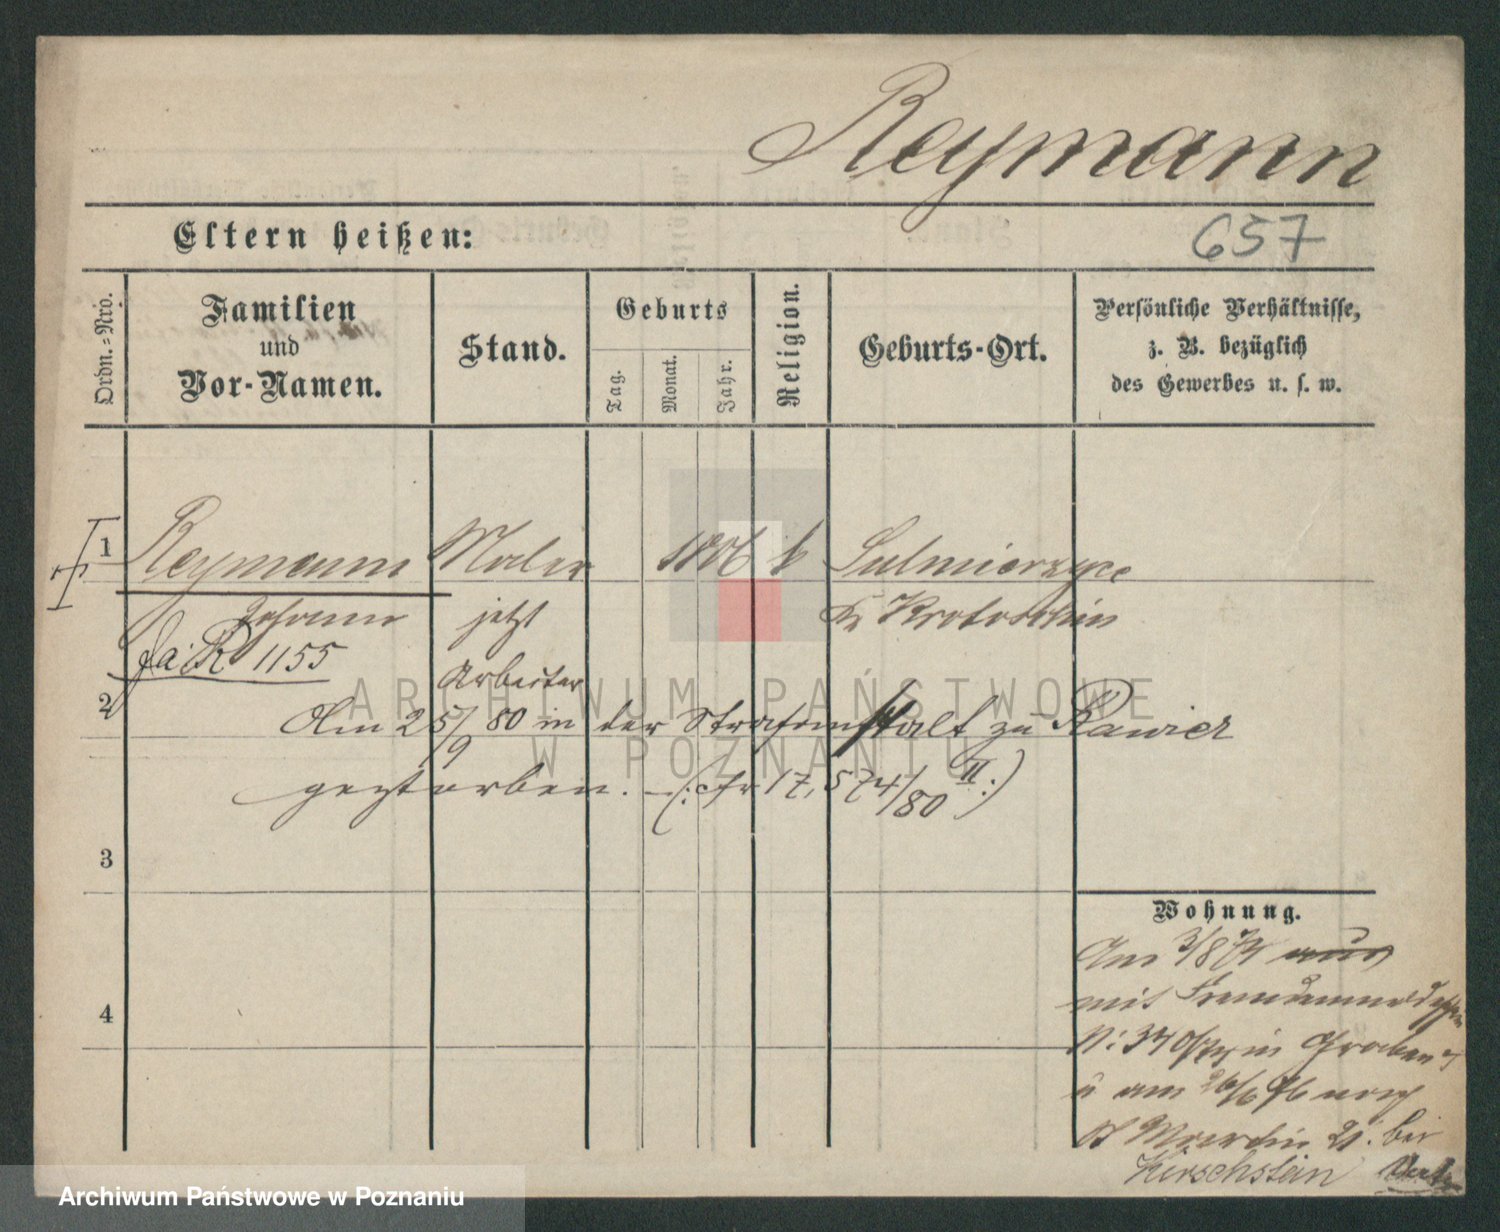 Reymann
Eltern heißen:
657
Ordn.=Nro.
Familien
und
Vor-Namen.
Stand.
Geburts
Tag.
Monat.
Jahr.
Religion.
Geburts-Ort.
Persönliche Verhältnisse,
z. B. bezüglich
des Gewerbes u. s. w.
1
Reymann Maler 1806 k Sulmierzyce
Johann jetzt Kr Krotoschin
1155
Arbeiter
2
Am 25/9 80 in der Strafanstalt zu Rawicz
gestorben. (: cfr 17,574/80 II :)
3
Wohnung.
Am 3/8 74 aus
mit
4
N: 340/74 in Graben
u am 26/6 76 nach
St Martin 21. bei
Kirschstein
ARCHIWUM PAŃSTWOWE
W POZNANIU
Archiwum Państwowe w Poznaniu